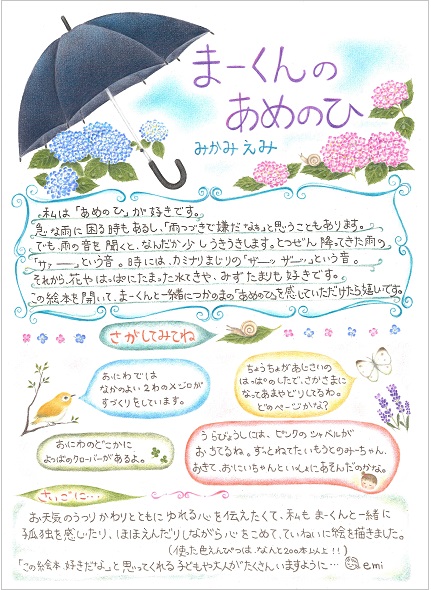 まーくんの
あめのひ
みかみ えみ
私は「あめのひ」が好きです。
急な雨に困る時もあるし、「雨つづきで嫌だなぁ」と思うこともあります。
でも、雨の音を聞くと、なんだか少しうきうきします。とつぜん降ってきた雨の
「サァーー」という音。時には、カミナリまじりの「ザーッ ザーッ」という音。
それから、花やはっぱにたまった水てきや、みずたまりも好きです。
この絵本を開いて、まーくんと一緒につかのまの「あめのひ」を感じていただけたら嬉しいです。
さがしてみてね
おにわでは
なかのよい2わのメジロが
すづくりをしています。
ちょうちょがあじさいの
はっぱのしたで、さかさまに
なってあまやどりしてるわ。
どのページかな?
おにわのどこかに
よつばのクローバーがあるよ。
うらびょうしには、ピンクのシャベルが
おちてるね。ずっとねてたいもうとのみーちゃん、
おきて、おにいちゃんといっしょにあそんだのかな。
さいごに…
お天気のうつりかわりとともにゆれる心を伝えたくて、私もまーくんと一緒に
孤独を感じたり、ほほえんだりしながら心をこめて、ていねいに絵を描きました。
(使った色えんぴつは、なんと200本以上!!)
「この絵本 好きだな」と思ってくれる子どもや大人がたくさんいますように… emi